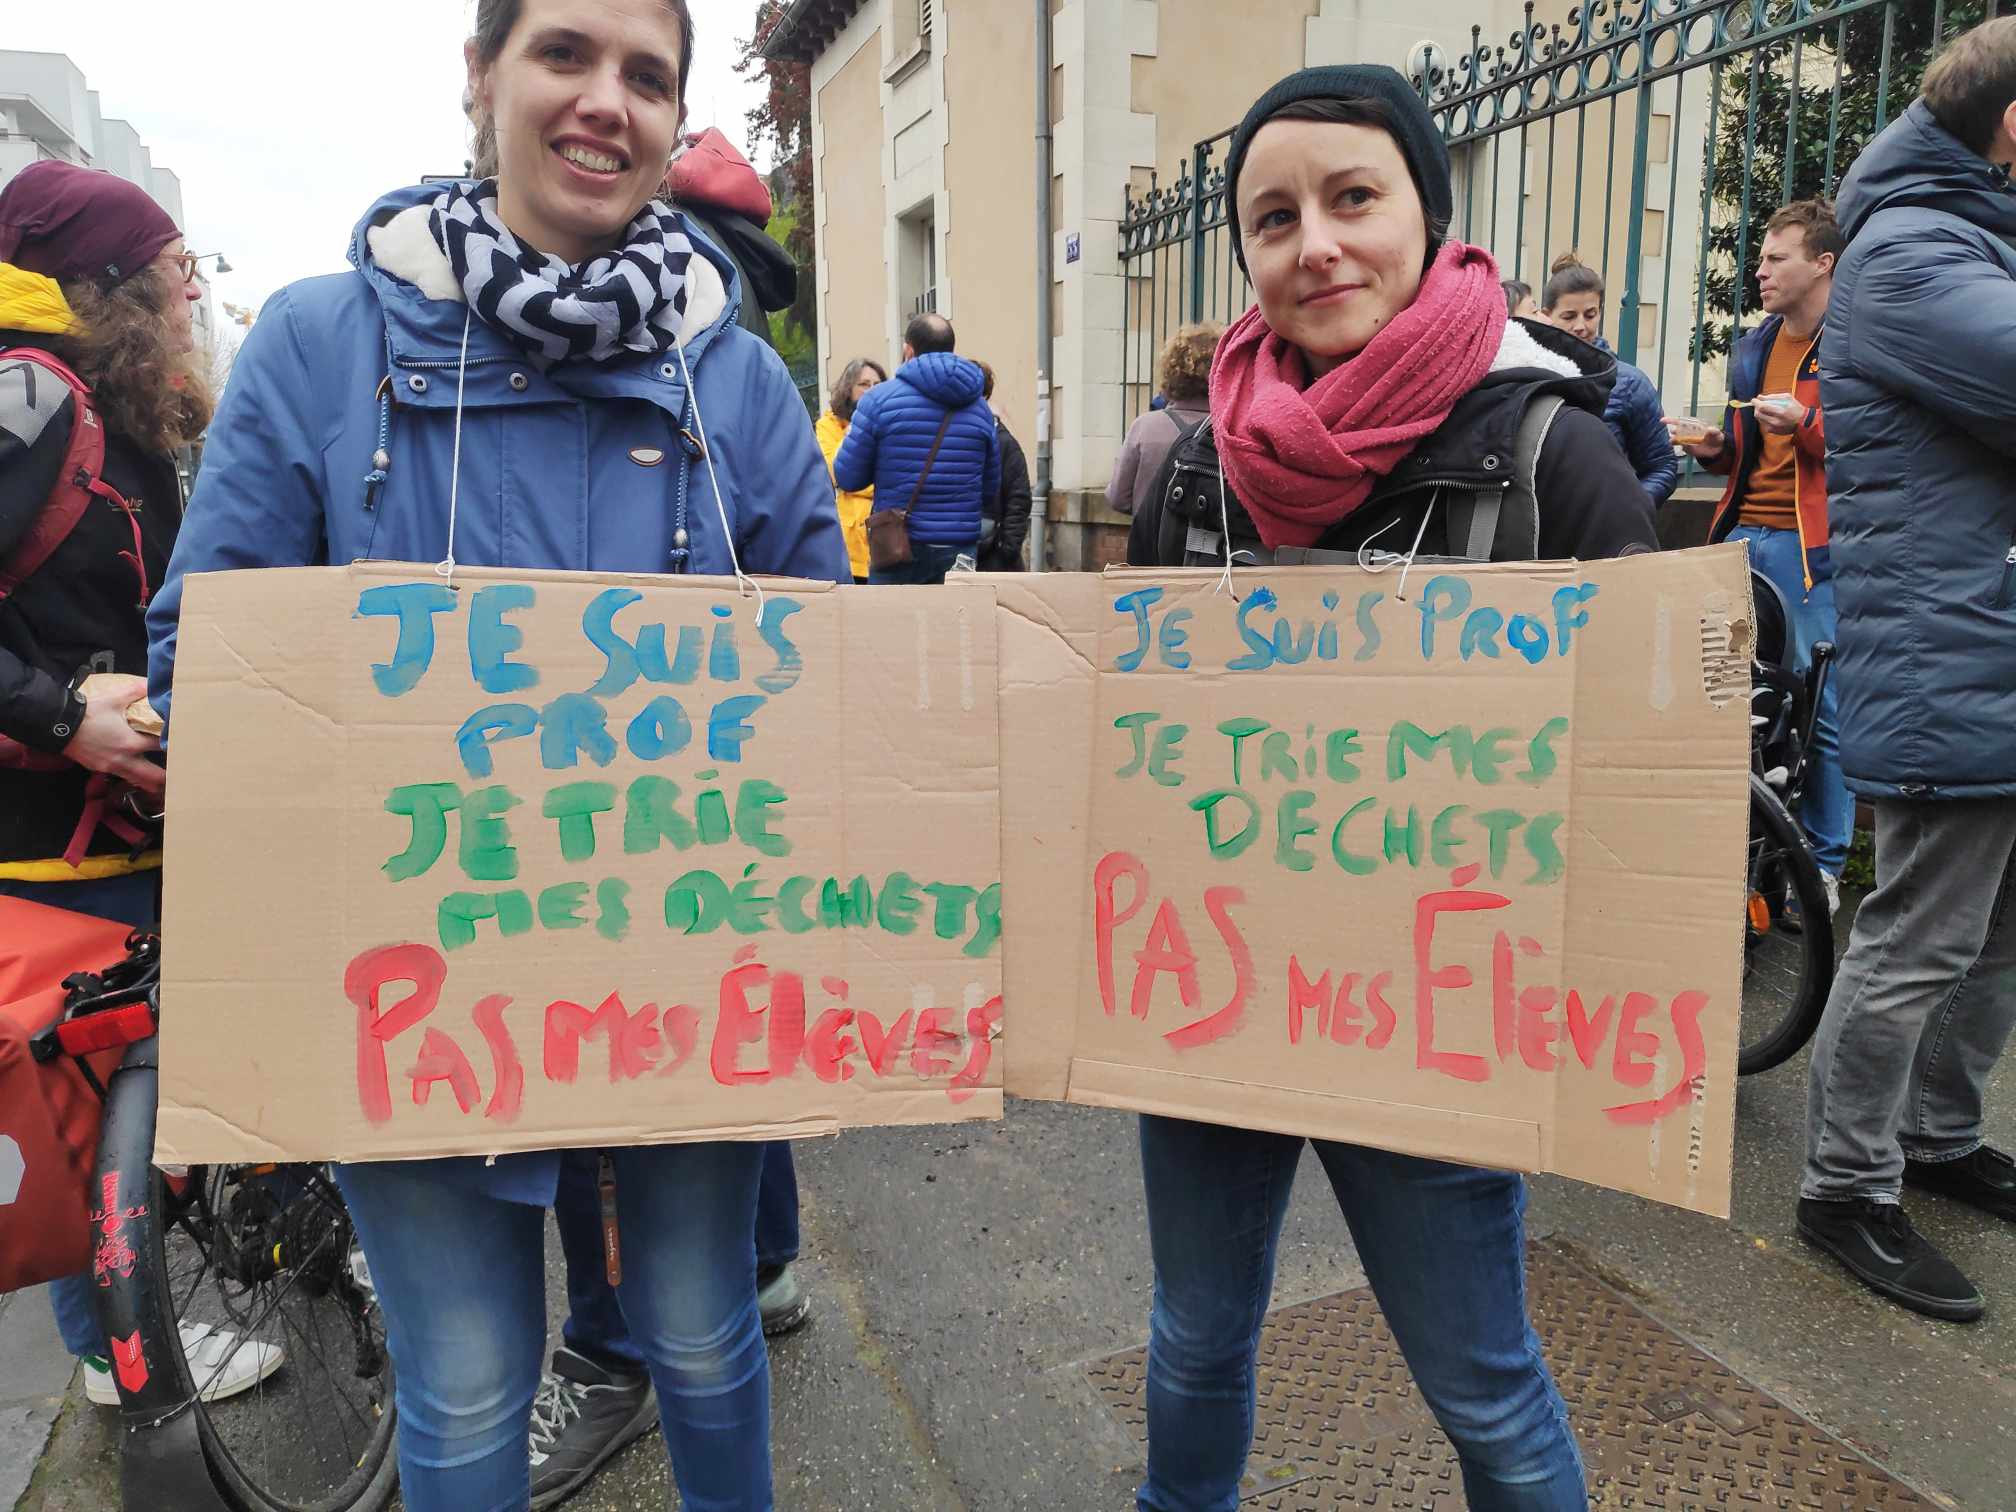 JE SUiS
PROF
JE TRIE
MES DÉCHETS
PAS MES ÉlèVES
JE SUiS PROF
JE TRiE MES
DECHETS
PAS MES ÉlèVES